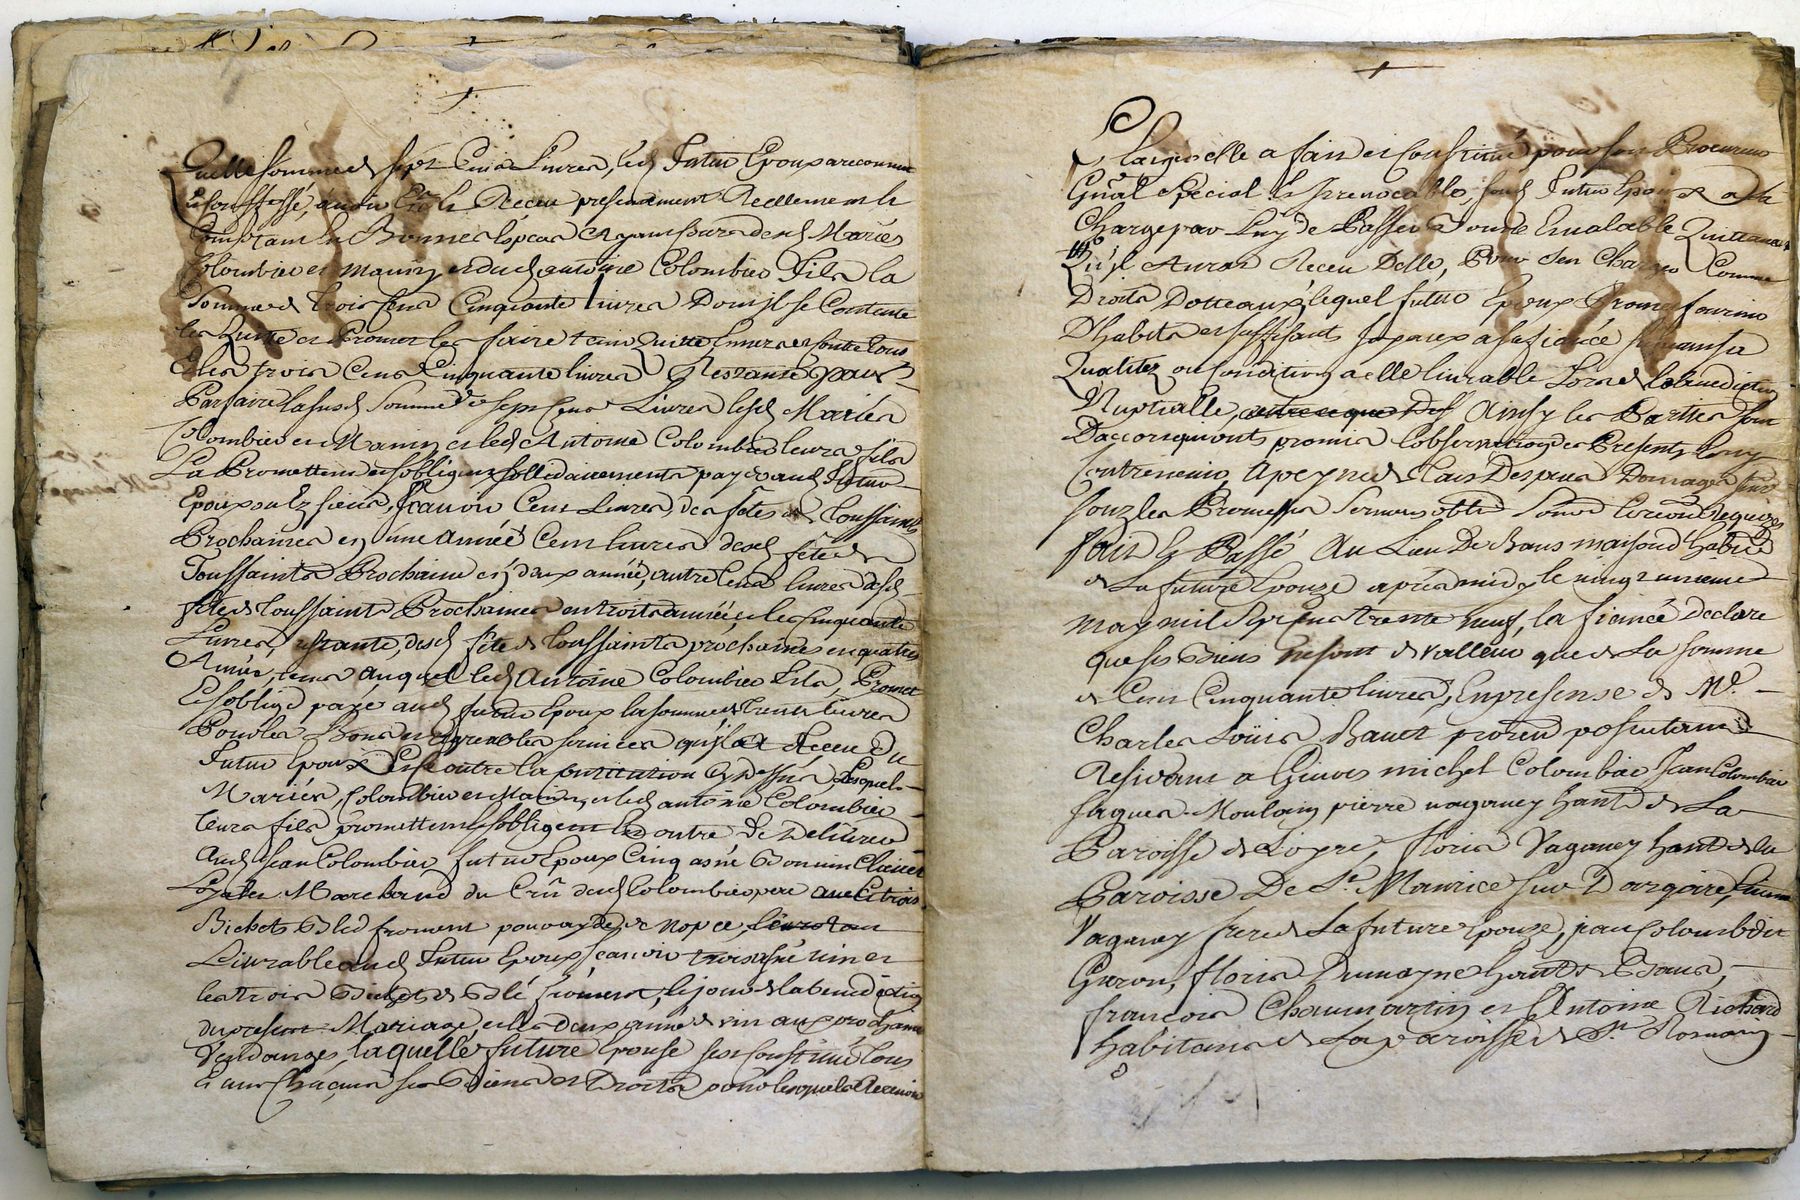 Quelle somme de sept Cens Livres, led. futur Epoux a reconnu
et confessé, avoir Eû et Receu presentement Reellement et
Comptant en Bonnes Especes ayant Cours desd. Mariés
Colombier et Mauin, et dud. antoine Colombier fils la
Somme de trois Cens Cinquante livres Dont il se Contente
les Quitte et Promet les faire tenir Quitte Envers et contre tous
Et les trois Cens Cinquante livres Restante pour
Parfaire la susd. Somme de sept Cens Livres lesd. Mariés
Colombier et Mauin, et led. Antoine Colombier leurs fils
La Promettent et s'obligent sollidairement a payer aud. futur
Epoux ou Ez siens, Scavoir Cent Livres des fêtes de Toussaints
Prochaines en une année Cent livres desd. fêtes de
Toussaints Prochaine en deux année, autre Cent livres desd.
fête de Toussaints Prochaines en trois année, et les cinquante
Livres, restante, desd. fête de Toussaints prochaines en quatre
Année, tems auquel led. Antoine Colombier fils, Promet
Et s'oblige payé aud. futur Epoux la somme de trente livres
Pour les Bons et agreables services qu'il at Receu du
futur Epoux, Et outre la constitution Cy dessus, Lesquels
Mariés, Colombier et Mauin, et led. antoine Colombier
leurs fils promettent et s'obligent En outre de Delivrer
Aud. Jean Colombier, futur Epoux Cinq asné Bon vin Clairet
Loyal et Marchand du Crû dud. Colombier pere avec trois
Bichets Bled froment pour aydes de Nopce,
Livrable aud. futur Epoux scavoir trois asné vin et
les trois Bichets de Blé froment, le jour de la benediction
du present Mariage, et les deux anné de vin aux prochaines
Vendanges, laquelle future Epouse s'est Constitué tous
Et uns Châcuns ses Biens et Droits pour lesquels Recevoir
Laquelle a fait et Constitué pour son Procureur
Gñal Special Et Irrevocable, sond. futur Epoux a la
Charge par Luy de Passer a vous Envalable Quittance
Qu'il Aurat Receu Delle, Pour S'en Charger Comme
Droits Dotteaux, lequel futur Epoux Promet fournir
D'habits et suffisants Joyaux a sa fiancée suivant sa
Qualitez ou Condition, a elle livrable Lors de la benediction
Nuptialle, Ainsy les Parties sont
D'accors qui ont promis l'observation des Presentes sans y
Contrevenir, Apeyne de tous Despens Domages
soubz les Promesses Serment obbon Soumon Renon Requises
fait et Passé Au Lieu De Bans maison d'habon
de La future Epouze après midy le vingt unieme
may mil Sept Cens trente neuf, la fiancé declare
que ses Biens ne sont de valleur que de La somme
de Cent Cinquante livres, En presense de Me.
Charles Loüis Bauet
Residant a Givors michel Colombier Jean Colombier
Jaques Moulain, pierre vaganey hants de La
Paroisse de Loyre, floris Vaganey hant de la
Paroisse De St. Maurice sur Dargoire,
Vaganey frere de La future Epouze, jean Colomb dit
Garon, floris Dumayne hants de Bans,
francois Chaumartin et Antoine Richard
habitans de La paroisse de St. Romain